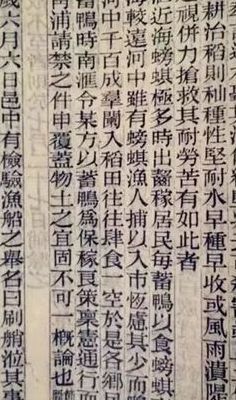 耕治稻則秈種性堅耐水早種早收或風雨潰
視併力搶救其耐勞苦有如此者
近海螃蜞極多時出齧稼居民每蓄鴨以食螃蜞
海較遠河中雖有螃蜞漁人捕以入市恆慮其少而
河中千百成羣闌入稻田往往肆食一空於是各鄉
蓄鴨時南滙令某方以蓄鴨為保稼良策稟憲通行而
青浦請禁之件申覆蓋物土之宜固不可一概論也
歲六月六日邑中有檢驗漁船之舉名曰刷艄涖其事